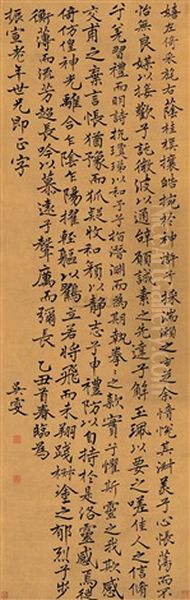 嬉左倚采旄右蔭桂旗攘皓捥於神滸兮采湍瀨之玄芝余情悅其淑美兮心悵蕩而不
怡無良媒以接歡兮託微波以通辭願誠素之先達兮解玉珮以要之嗟佳人之信脩
兮羌習禮而明詩抗瓊珶以和予兮指潛淵而為期執拳々之款實兮懼斯靈之我欺感
交甫之棄言悵猶豫而狐疑收和顏以靜志兮申禮防以自持於是洛靈感焉徙
倚彷徨神光離合乍陰乍陽擢輕軀以鶴立若將飛而未翔踐椒塗之郁烈兮步
蘅薄而流芳超長吟以慕遠兮聲厲而彌長 乙丑首春臨為
振宣老年世兄即正字
吳雯